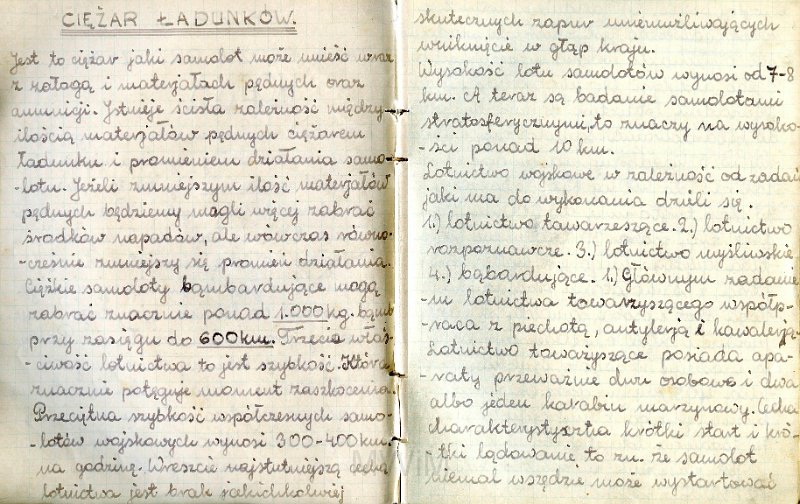 CIĘŻAR ŁADUNKÓW.
Jest to ciężar jaki samolot może unieść wraz
z załogą i materjałach pędnych oraz
amunicji. Istnieje ścisła zależność między
ilością materjałów pędnych ciężarem
ładunku i promieniem działania samo-
-lotu. Jeżeli zmniejszym ilość materjałów
pędnych będziemy mogli więcej zabrać
środków napadów, ale wówczas równo-
-cześnie zmniejszy się promień działania.
Ciężkie samoloty bąmbardujące mogą
zabrać znacznie ponad 1.000 kg. bąmb
przy zasięgu do 600 km. Trzecia właś-
-ciwość lotnictwa to jest szybkość. Która
znacznie potęguje moment zaszkoczenia.
Przeciętna szybkość współczesnych samo-
-lotów wojskowych wynosi 300-400 km.
na godzinę. Wreszcie najstutniejszą cechą
lotnictwa jest brak jakichkolwiej
skutecznych zapur uniemużliwiających
wniknięcie w głąp kraju.
Wysokość lotu samolotów wynosi od 7-8
km. A teraz są badanie samolotami
stratosferycznymi, to znaczy na wysoko-
-ści ponad 10 km.
Lotnictwo wojskowe w zależność od zadań
jaki ma do wykonania dzieli się.
1.) lotnictwo towarzeszące. 2.) lotnictwo
rozpoznawcze. 3.) lotnictwo myśliwskie.
4.) bąbardujące. 1.) Głównym zadanie-
-m lotnictwa towarzyszącego współp-
-raca z piechotą, artylerją i kawalerją.
Lotnictwo toważyszące posiada apa-
-raty przeważnie dwu osobowe i dwa
albo jeden karabin marzynowy. Cecha
charakterystyczna krótki start i kró-
-tki lądowanie to zn. że samolot
niemal wszędzie może wystartować